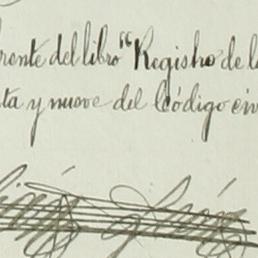 rente del libro "Registro de l
ta y nueve del Código civ